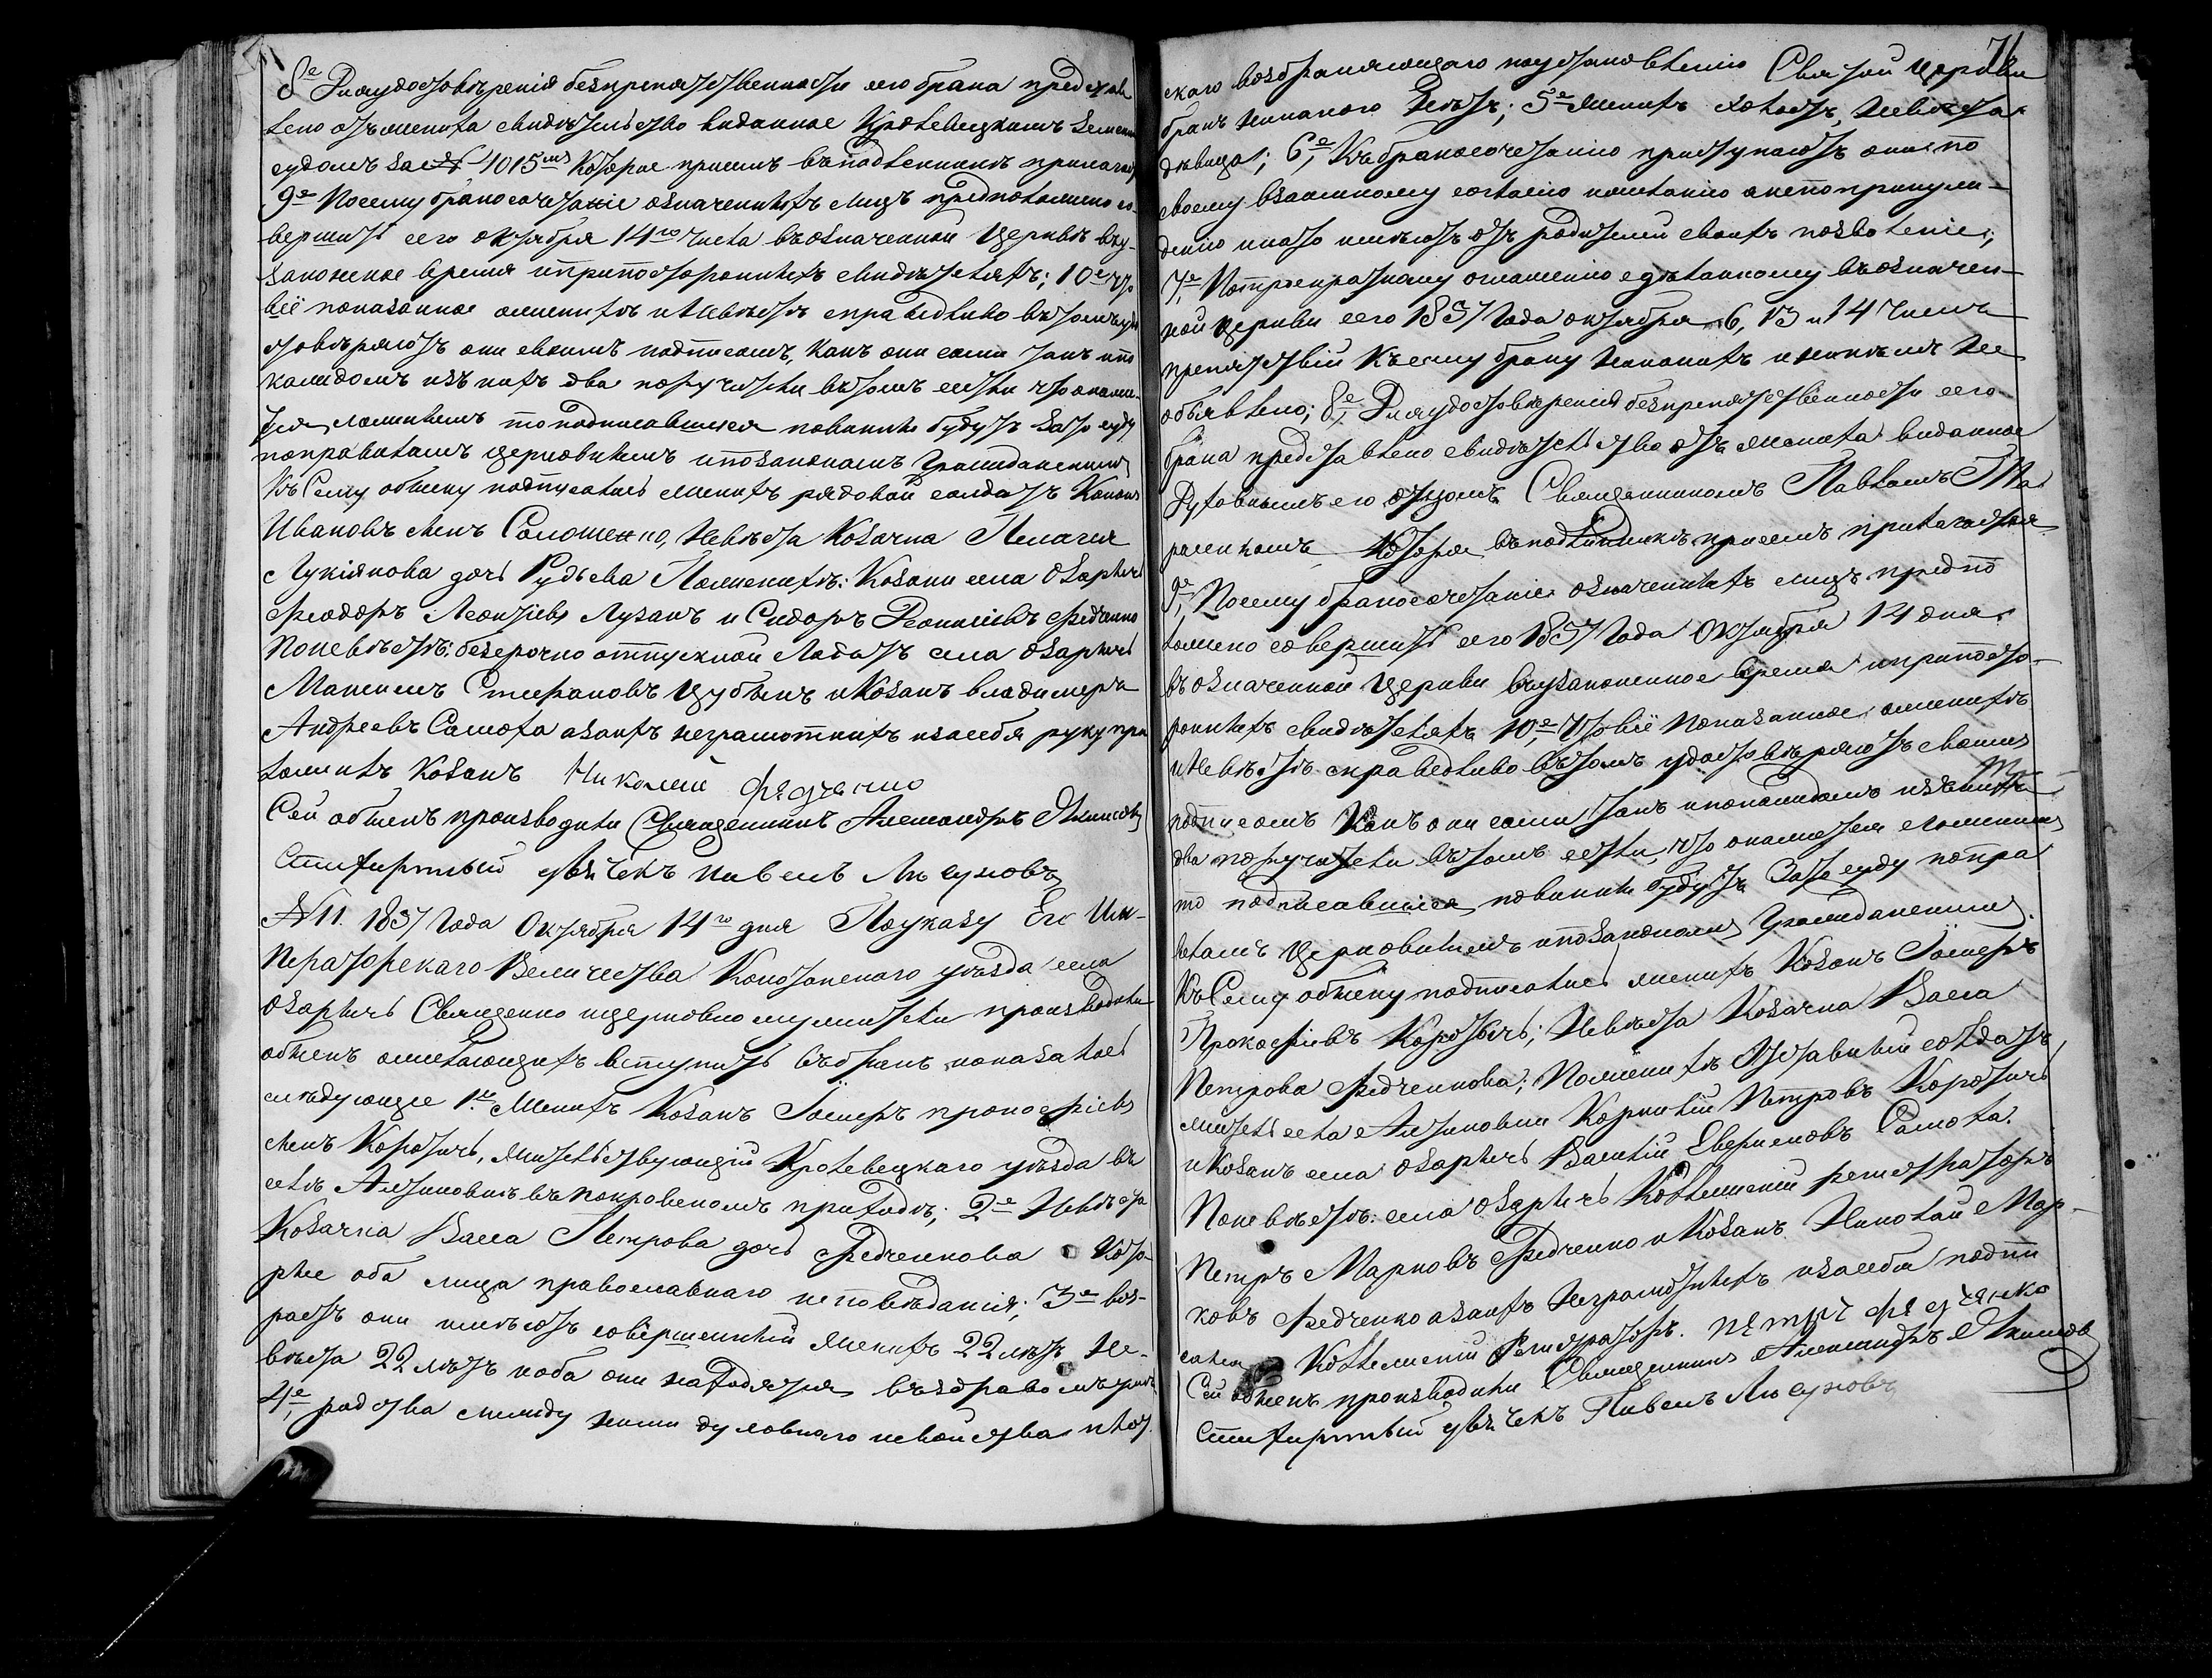 8е Для удостовѣренія безпрепятственности его брака представ
лено отъ жениха свидѣтельство виданное Кролевицкимъ земскимъ
судомъ за № 4015мъ Которое присемъ въ подленникѣ прилагаю
9е Посему бракосочетаніе означеннихъ лицъ предположено со-
вершить сего октября 14го числа въ означенной Церквѣ вну-
законенное время и припостороннихъ свидѣтеляхъ; 10е что
всё показанное о женихѣ и Невѣстѣ справедливо въ томъ удо
стовѣряютъ они своимъ подписомъ, какъ они сами такъ и по
каждомъ изъ нихъ два поручители въ томъ если что окаже
тся ложнимъ то подписавшися повинни будутъ за то суду
поправиламъ церковнимъ и позаконамъ Гражданскимъ
Къ Сему обыску подписались женихъ рядовой солдатъ Кононъ
Ивановъ синъ Соломенно, Невѣста Козачка Пелагея
Лукіянова дочь Рудьева По женихѣ: Козаки села Озаричь
Феодоръ Леонтіевъ Лузанъ и Сидоръ Деонисіевъ Федченко
По невѣстѣ: безсрочно отпускной солдатъ села Озаричь
Максимъ Стефановъ Цубынъ и Козакъ владимеръ
Андреевъ Самоха а за нихъ неграмотнихъ и за себя руку при
ложилъ Козакъ Николай Федченко
Сей обыскъ производили Священникъ Александръ Якимовъ
Стихирный дьячекъ Павелъ Лясуновъ
№ 11. 1837 Года Октября 14го дня По указу Его Им-
Ператорскаго Величества Конотопскаго уѣзда села
Озаричь Священно и церковно служители производили
обыскъ о желающихъ вступить въ бракъ и оказалось
слѣдующее 1е. Женихъ Козакъ Іосифъ прокофіевъ
синъ Коротичь, жительствующій Кролевецкаго уѣзда въ
селѣ Алтиновкѣ въ покровскомъ приходѣ; 2е Невѣста
Козачка Васса Петрова дочь Федченкова Кото-
рие оба лица православнаго исповѣданія; 3е воз-
растъ они имѣютъ совершенний Женихъ 22 лѣтъ Не-
вѣста 22 лѣтъ и оба они находятся въ здравомъ умѣ
4е, родства между ними духовнаго и свойства плот
скаго возбраняющаго по установленію Святой Церкви
бракъ никакого Нѣтъ; 5е Женихъ холостъ, Невѣста
дѣвица; 6е, Къ бракосочетанію приступаютъ они по
своему взаимному согласію и желанію а непопринуж-
денію и на то имѣютъ отъ родителей своихъ позволеніе;
7е, По троекратному оглашенію сдѣланному въ означен-
ной церкви сего 1837 Года октября 6, 13 и 14 Числъ
препятствій къ сему браку никакихъ и никѣмъ Не
объявлено; 8е, Для удостовѣренія безпрепятственности сего
брака представлено свидѣтельство отъ жениха виданное
Духовнымъ его отцомъ Священникомъ Павломъ
Которое въ подлинникѣ присемъ прилагается
9е, Посему бракосочетаніе означеннихъ лицъ предпо
ложено совершить сего 1837 Года Октября 14 дня.
въ означенной Церкви въ узаконенное время и припосто-
роннихъ свидѣтеляхъ 10е, Что всё показанное о женихѣ
и Невѣстѣ справедливо въ томъ удостовѣряютъ своимъ
подписомъ Какъ они сами такъ и по каждомъ изъ нихъ
два поручители въ томъ если, что окажется ложнимъ
то подписавшися повинни будутъ За то суду попра
виламъ Церковнимъ и позаконамъ Гражданскимъ.
Къ Сему обыску подписались женихъ Козакъ Іосифъ
Прокофіевъ Коротычь; Невѣста Козачка Васса
Петрова Федченкова; По женихѣ Отставний солдатъ
житель села Алтиновки Корнилій Петровъ Коротичь
и Козакъ села Озаричь Василій Аверкіевъ Самоха.
По невѣстѣ: села Озаричь Коллежскій регистраторъ
Петръ Марковъ Федченко и Козакъ Николай Мар-
ковъ Федченко а за нихъ Неграмотнихъ и за себя подпи
сался Коллежскій Регистраторъ. Петръ Федченко
Сей обыскъ производили Священникъ Александръ Якимовъ
Стихирный дьячекъ Павелъ Лясуновъ